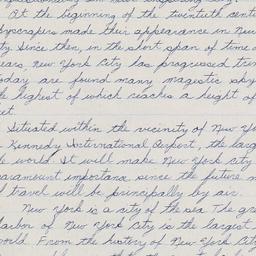 At the beginning of the twentieth cent
skyscrapers made their appearance in New
ty. Since then, in the short span of time o
ears, New York City has progressed tre
oday are found many magestic sky
he highest of which reaches a height of
eet.
Situated within the vicinity of New Yo
Kennedy International Airport, the larg
he world. It will make New York City
paramount importance since the future m
f travel will be principally by air.
New York is a city of the sea. The gre
arbor of New York City is the largest
world. From the history of New York City